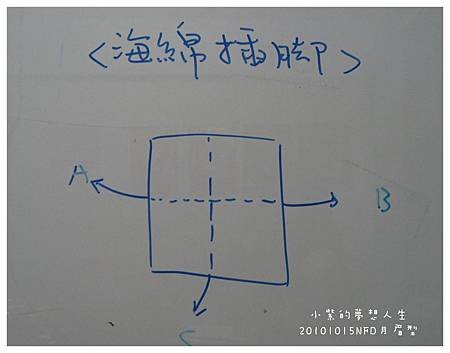 <海綿插腳>
A
B
C
小紫的夢想人生
20101015NFD月眉型